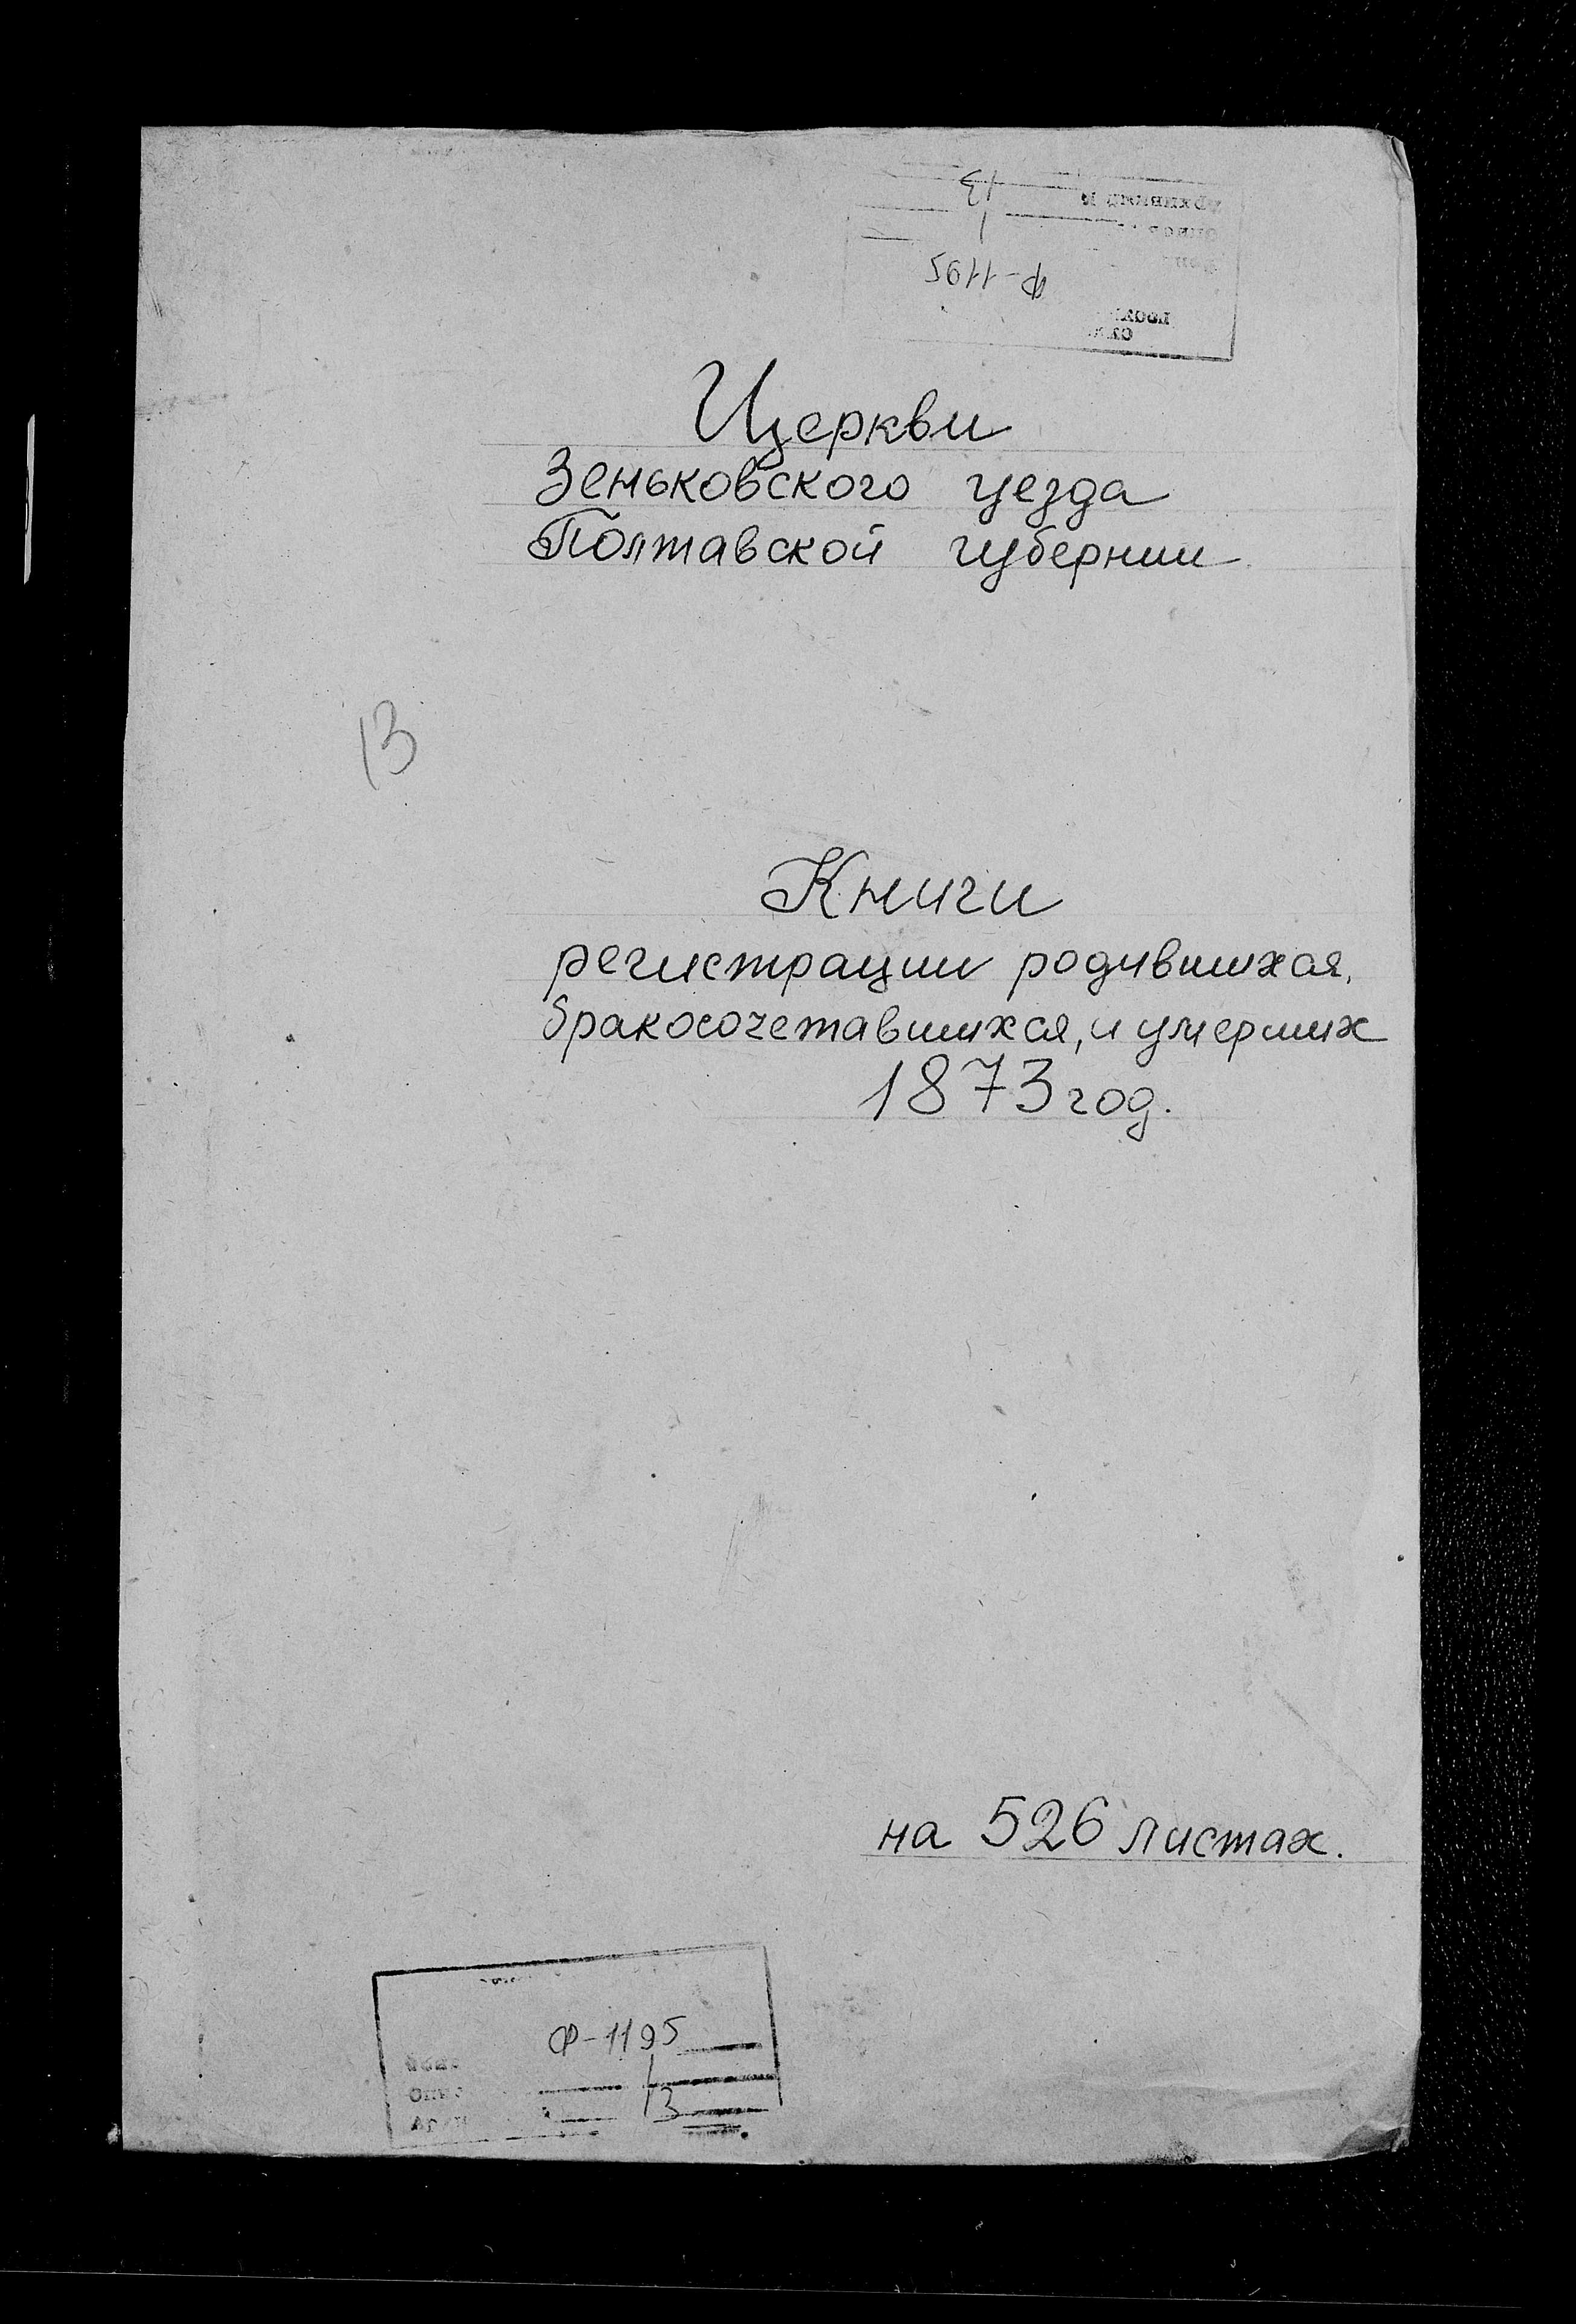 13
1
Ф-1195
Церкви
Зеньковского уезда
Полтавской губернии
13
Книги
регистрации родившихся,
бракосочетавшихся, и умерших
1873 год.
на 526 листах.
Ф-1195
1
13